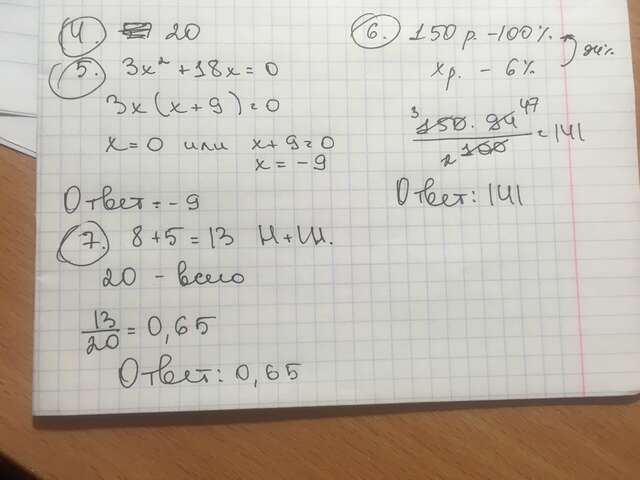 4. 20
5. 3x² + 18x = 0
3x(x+9)=0
x=0 или x+9=0
x=-9
Ответ: -9
7. 8+5=13 Н+Ш.
20 - всего
13/20 = 0,65
Ответ: 0,65
6. 150 р - 100% 94%
x р. - 6%
³150 · 94 ⁴⁷ / ₂100 = 141
Ответ: 141